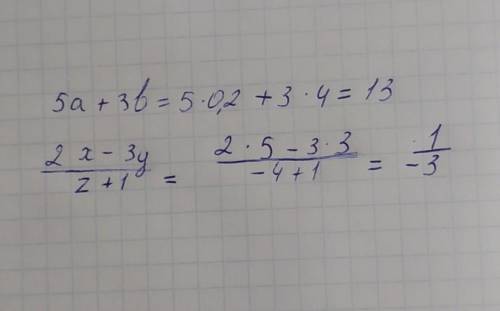 5a + 3b = 5 · 0,2 + 3 · 4 = 13
(2x - 3y)/(z + 1) = (2 · 5 - 3 · 3)/(-4 + 1) = 1/(-3)